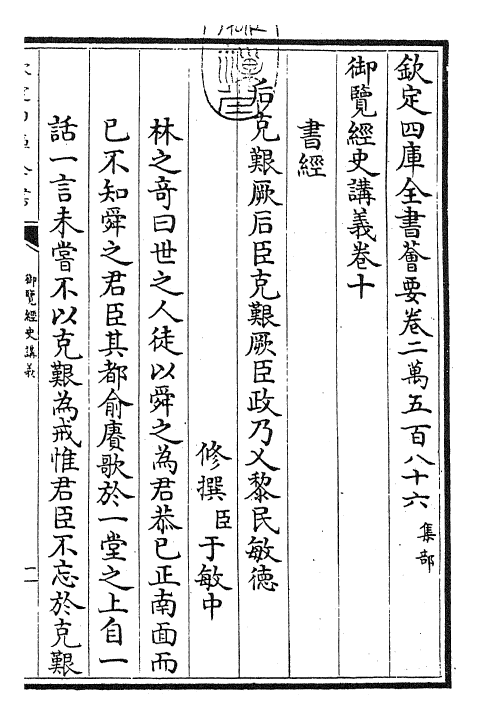 欽定四庫全書薈要卷二萬五百八十六 集部
御覽經史講義卷十
書經
后克艱厥后臣克艱厥臣政乃乂黎民敏德
修撰臣于敏中
林之奇曰世之人徒以舜之為君恭已正南面而
已不知舜之君臣其都俞賡歌於一堂之上自一
話一言未嘗不以克艱為戒惟君臣不忘於克艱
御覽經史講義